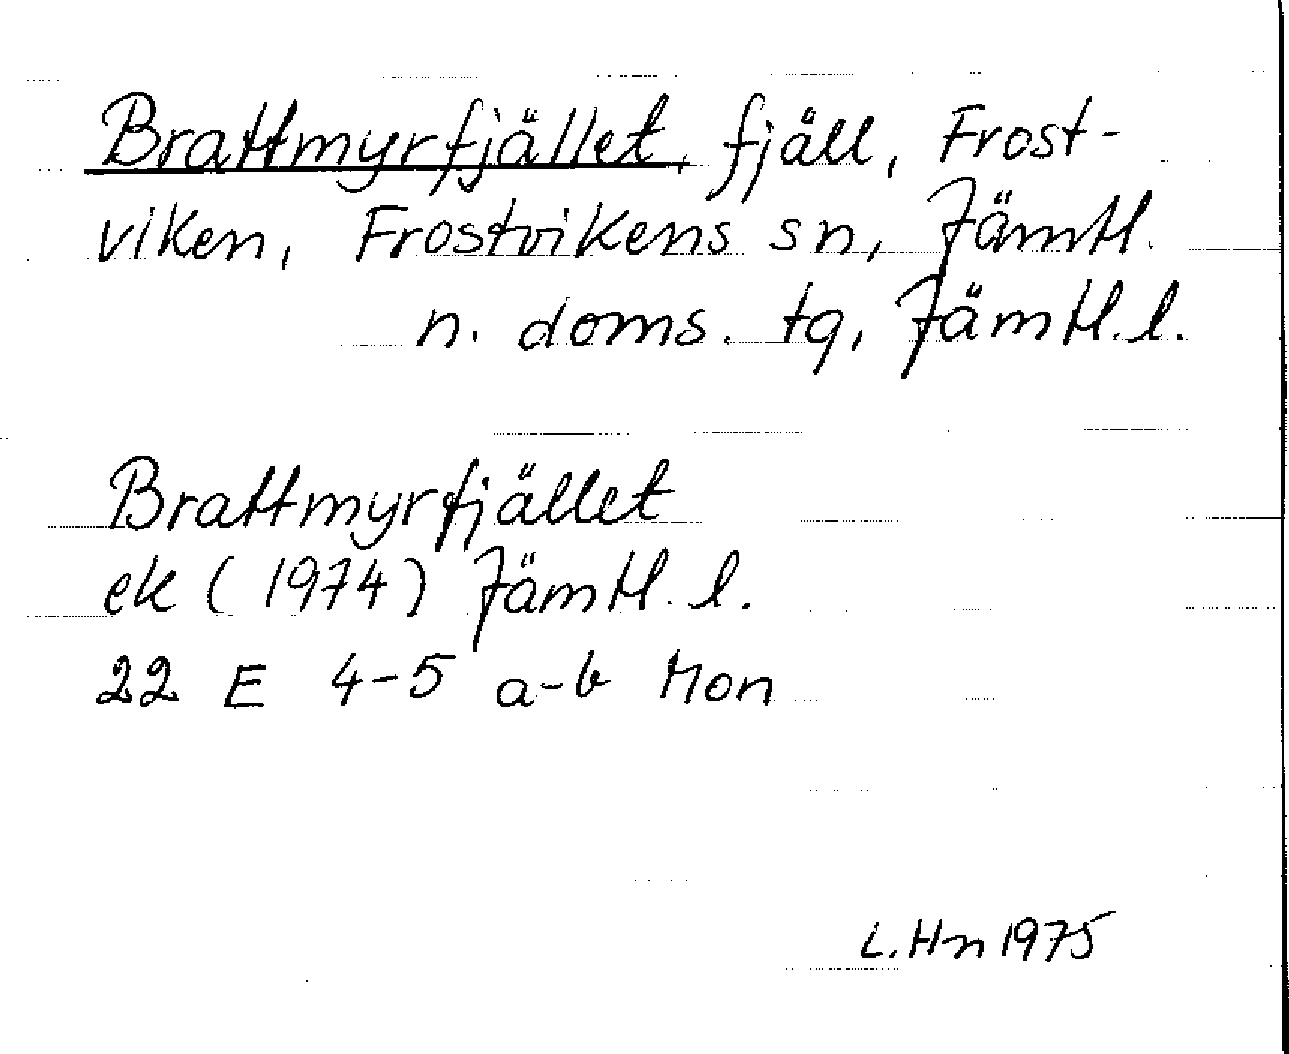 Brattmyrfjället, fjäll, Frost-
viken, Frostvikens sn, Jämtl.
n. doms. tg, Jämtl. l.
Brattmyrfjället
ek (1974) Jämtl. l.
22 E 4-5 a-b Mon
L. Hn 1975